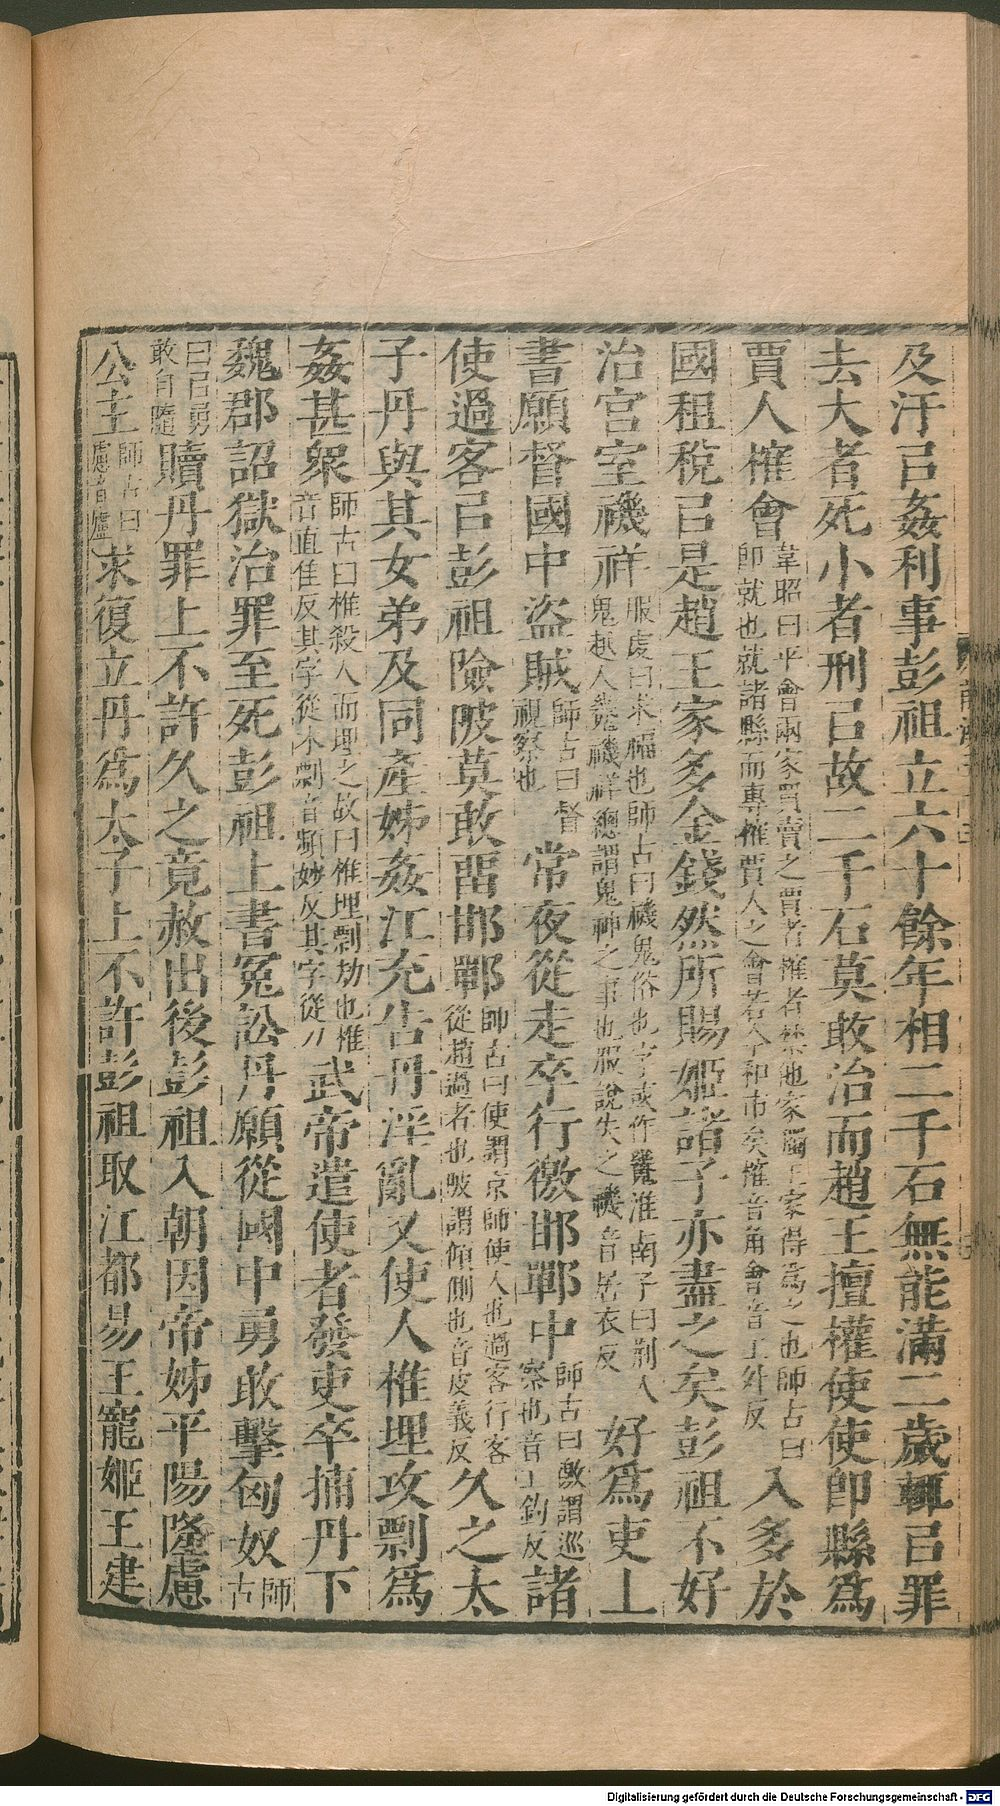 及汙㠯姦利事彭祖立六十餘年相二千石無能滿二歲輒㠯罪
去大者死小者刑㠯故二千石莫敢治而趙王擅權使使卽縣爲
賈人榷會韋昭曰平會兩家買賣之賈者榷者禁他家獨王家得爲之也師古曰卽就也就諸縣而專榷賈人之會若今和市矣榷音角會音工外反入多於
國租稅㠯是趙王家多金錢然所賜姬諸子亦盡之矣彭祖不好
治宮室禨祥服虔曰求福也師古曰禨鬼俗也字或作䰀淮南子曰荆人鬼越人䰀禨祥總謂鬼神之事也服說失之禨音居衣反好爲吏上
書願督國中盜賊師古曰督視察也常夜從走卒行徼邯鄲中師古曰徼謂巡察也音工釣反諸
使過客㠯彭祖險陂莫敢畱邯鄲師古曰使謂京師使人也過客行客從趙過者也陂謂傾側也音皮義反久之太
子丹與其女弟及同產姊姦江充告丹淫亂又使人椎埋攻剽爲
姦甚衆師古曰椎殺人而埋之故曰椎埋剽劫也椎音直佳反其字從木剽音頻妙反其字從刀武帝遣使者發吏卒捕丹下
魏郡詔獄治罪至死彭祖上書冤訟丹願從國中勇敢擊匈奴師古
曰㠯勇敢自隨贖丹罪上不許久之竟赦出後彭祖入朝因帝姊平陽隆慮
公主師古曰慮音廬求復立丹爲太子上不許彭祖取江都易王寵姬王建
Digitalisierung gefördert durch die Deutsche Forschungsgemeinschaft - DFG